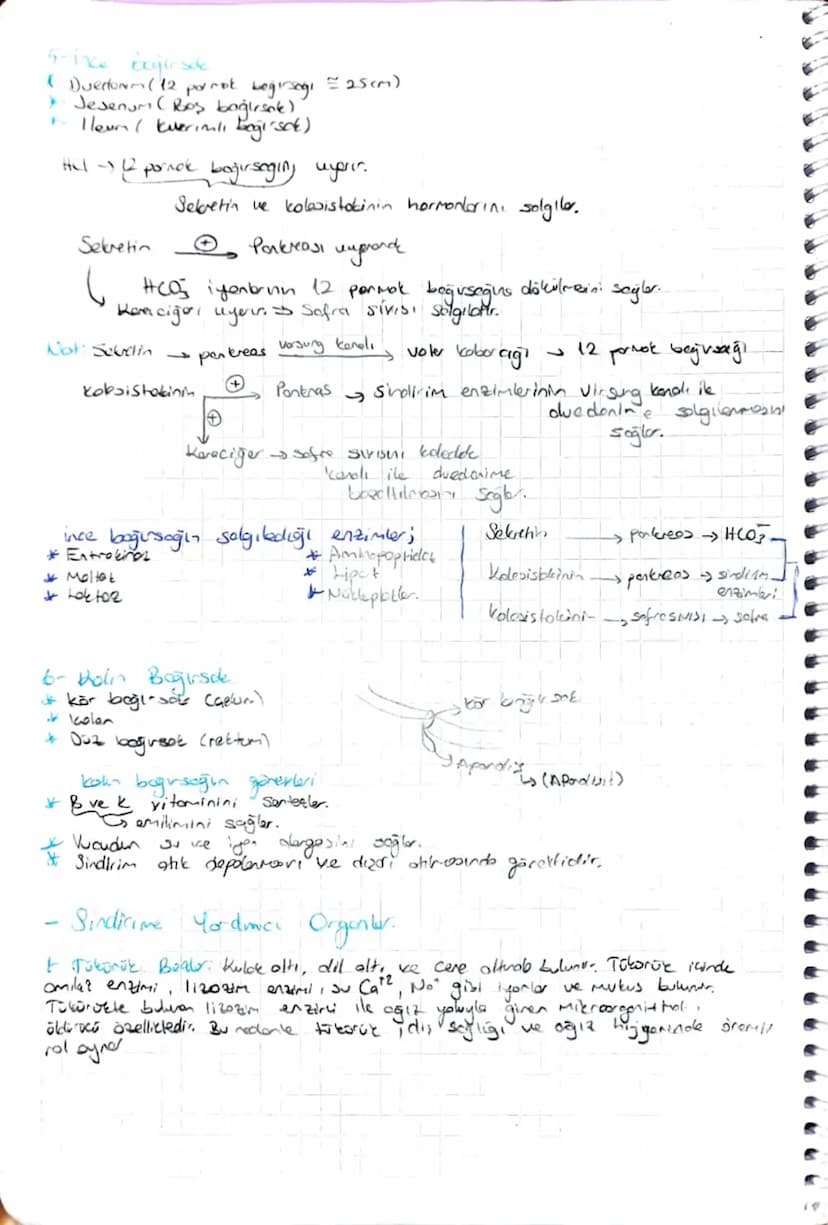 5-İnce bağırsak
Duedonum (12 parmak bağırsağı ≅ 25cm)
* Jejenum (Boş bağırsak)
* Ileum ( kıvrımlı bağırsak)
Hcl → 12 parmak bağırsağını uyarır.
Sekretin ve kolesistokinin hormonlarını salgılar.
Sekretin ⊕→ Pankreası uyararak
HCO₃⁻ iyonlarının 12 parmak bağırsağına dökülmesini sağlar.
Karaciğeri uyarır ⇒ Safra sıvısı salgılatır.
Not: Sekretin → pankreas virsung kanalı → vater kabarcığı → 12 parmak bağırsağı
kolesistokinin ⊕→ Pankras → sindirim enzimlerinin virsung kanalı ile
duedonum'e salgılanmasını
sağlar.
⊕
Karaciğer → safra sıvısını koledok
kanalı ile duedonuma
boşaltılmasını sağlar.
ince bağırsağın salgıladığı enzimler;
* Entrokinaz
* Maltaz
* Laktaz
* Aminopeptidaz
* Lipaz
* Nükleotitler.
Sekretin → pankreas → HCO₃⁻
Kolesistokinin → pankreas → sindirim
enzimleri
Kolesistokinin → safra sıvısı → safra
6- Kalın Bağırsak
* kör bağırsak (çekum)
* kolon
* Düz bağırsak (rektum)
kör bağırsak
Apandix
↳ (Apandisit)
kalın bağırsağın görevleri
* B ve K vitaminini sentezler.
↳ emilimini sağlar.
* Vucudun su ve iyon dengesini sağlar.
* Sindirim atık depolanması ve dışarı atılmasında görevlidir.
- Sindirime Yardımcı Organlar.
1 Tükürük Bezleri: Kulak altı, dil altı, ve çene altında bulunur. Tükürük içinde
amilaz enzimi, lizozim enzimi, su Ca⁺², Na⁺ gibi iyonlar ve mukus bulunur.
Tükürükte bulunan lizozim enzimi ile ağız yoluyla giren mikroorganizmaları
öldürücü özelliktedir. Bu nedenle tükürük, diş sağlığı ve ağız hijyeninde önemli
rol oynar